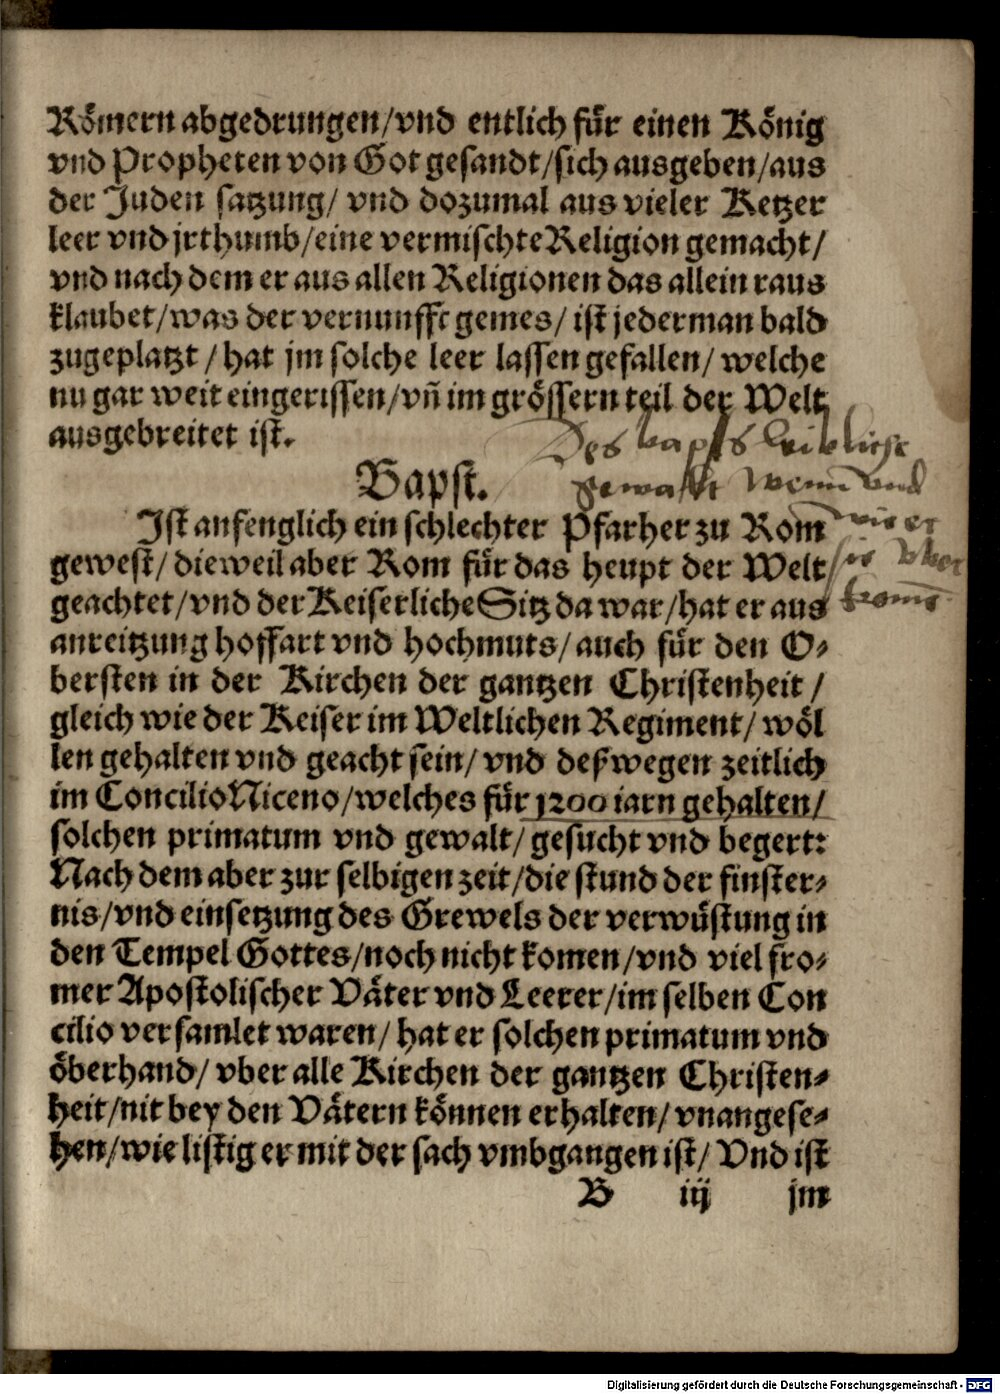 Römern abgedrungen/vnd entlich für einen König
vnd Propheten von Got gesandt/sich ausgeben/aus
der Juden satzung/ vnd dozumal aus vieler Ketzer
leer vnd jrthumb/eine vermischte Religion gemacht/
vnd nach dem er aus allen Religionen das allein raus
klaubet/was der vernunfft gemes/ ist jederman bald
zugeplatzt/hat jm solche leer lassen gefallen/ welche
nu gar weit eingerissen/vñ im grössern teil der Welt
ausgebreitet ist.
Des bapsts leibliche
gewalt wenn vnd
wie er
sie vber
komē
Bapst.
Ist anfenglich ein schlechter Pfarher zu Rom
gewest/ dieweil aber Rom für das heupt der Welt
geachtet/vnd der Keiserliche Sitz da war/hat er aus
anreitzung hoffart vnd hochmuts/ auch für den O⸗
bersten in der Kirchen der gantzen Christenheit/
gleich wie der Keiser im Weltlichen Regiment/ wöl
len gehalten vnd geacht sein/ vnd deßwegen zeitlich
im Concilio Niceno/welches für 1200 iarn gehalten/
solchen primatum vnd gewalt/ gesucht vnd begert:
Nach dem aber zur selbigen zeit/die stund der finster⸗
nis/vnd einsetzung des Grewels der verwüstung in
den Tempel Gottes/noch nicht komen/vnd viel fro⸗
mer Apostolischer Väter vnd Leerer/im selben Con
cilio versamlet waren/ hat er solchen primatum vnd
öberhand/ vber alle Kirchen der gantzen Christen⸗
heit/nit bey den Vätern können erhalten/ vnangese⸗
hen/wie listig er mit der sach vmbgangen ist/ Vnd ist
B iij jm
Digitalisierung gefördert durch die Deutsche Forschungsgemeinschaft - DFG